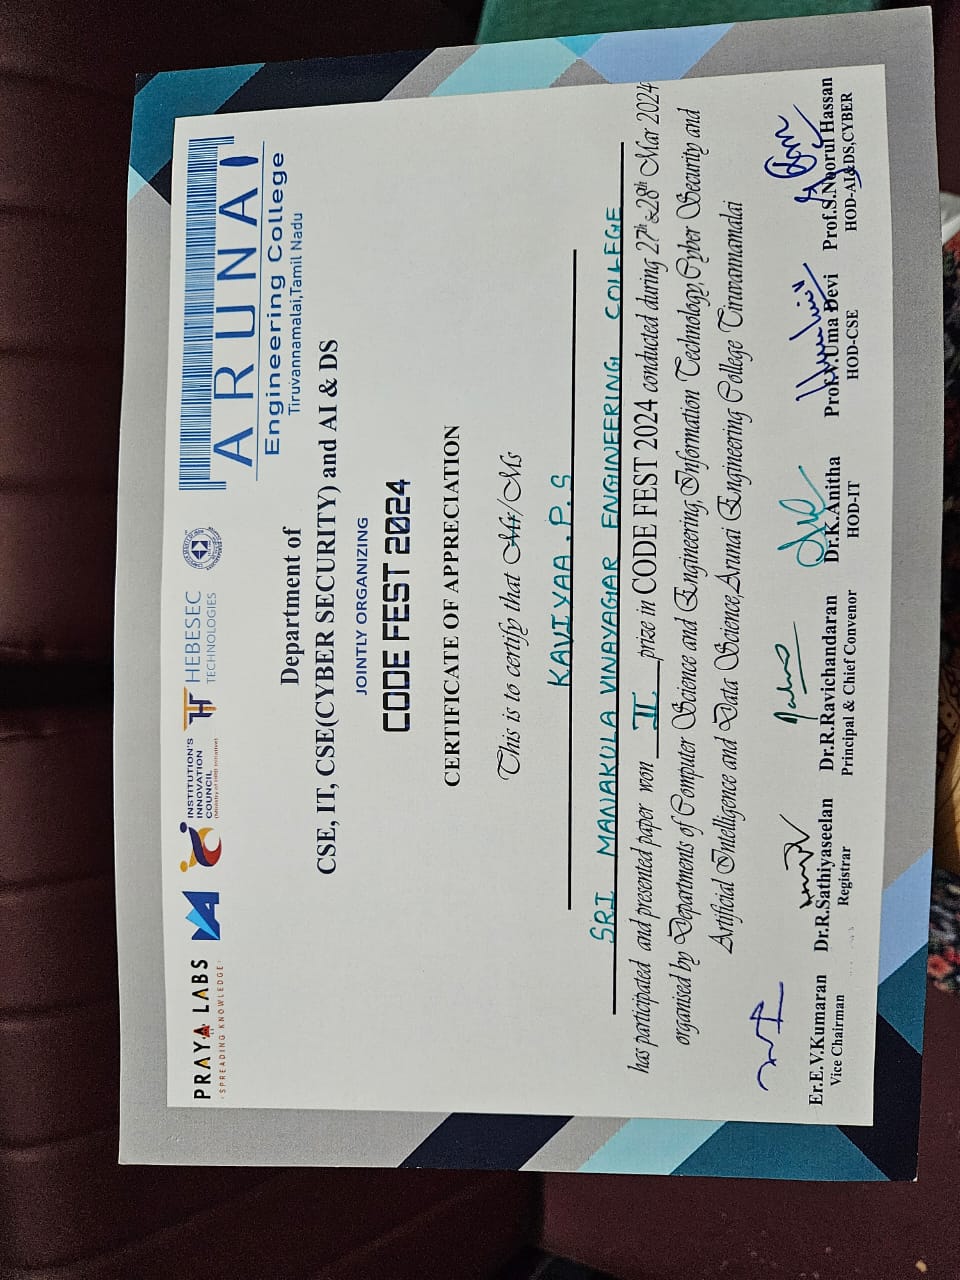 PRAYA LABS
SPREADING KNOWLEDGE
INSTITUTION'S
INNOVATION
COUNCIL
(Ministry of HRD Initiative)
HEBESEC
TECHNOLOGIES
ARUNAI
Engineering College
Tiruvannamalai,Tamil Nadu
Department of
CSE, IT, CSE(CYBER SECURITY) and AI & DS
JOINTLY ORGANIZING
CODE FEST 2024
CERTIFICATE OF APPRECIATION
This is to certify that Mr/Ms
KAVIYAA . P. S
SRI MANAKULA VINAYAGAR ENGINEERING COLLEGE
has participated and presented paper won II prize in CODE FEST 2024 conducted during 27th &28th Mar 2024
organised by Departments of Computer Science and Engineering,Information Technology,Cyber Security and
Artificial Intelligence and Data Science,Arunai Engineering College Tiruvannamalai
Er.E.V.Kumaran Dr.R.Sathiyaseelan Dr.R.Ravichandaran Dr.K.Anitha Prof.V.Uma Devi Prof.S.Noorul Hassan
Vice Chairman Registrar Principal & Chief Convenor HOD-IT HOD-CSE HOD-AI&DS,CYBER